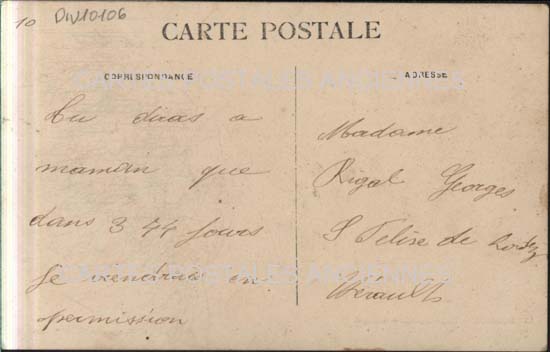 10 DIV10106
CARTE POSTALE
CORRESPONDANCE
Tu diras a
maman que
dans 3 44 jours
je viendrai en
permission
ADRESSE
Madame
Rigal Georges
S Felise de Lodez
Herault
CARTES POSTALES ANCIENNES
CARTES POSTALES ANCIENNES